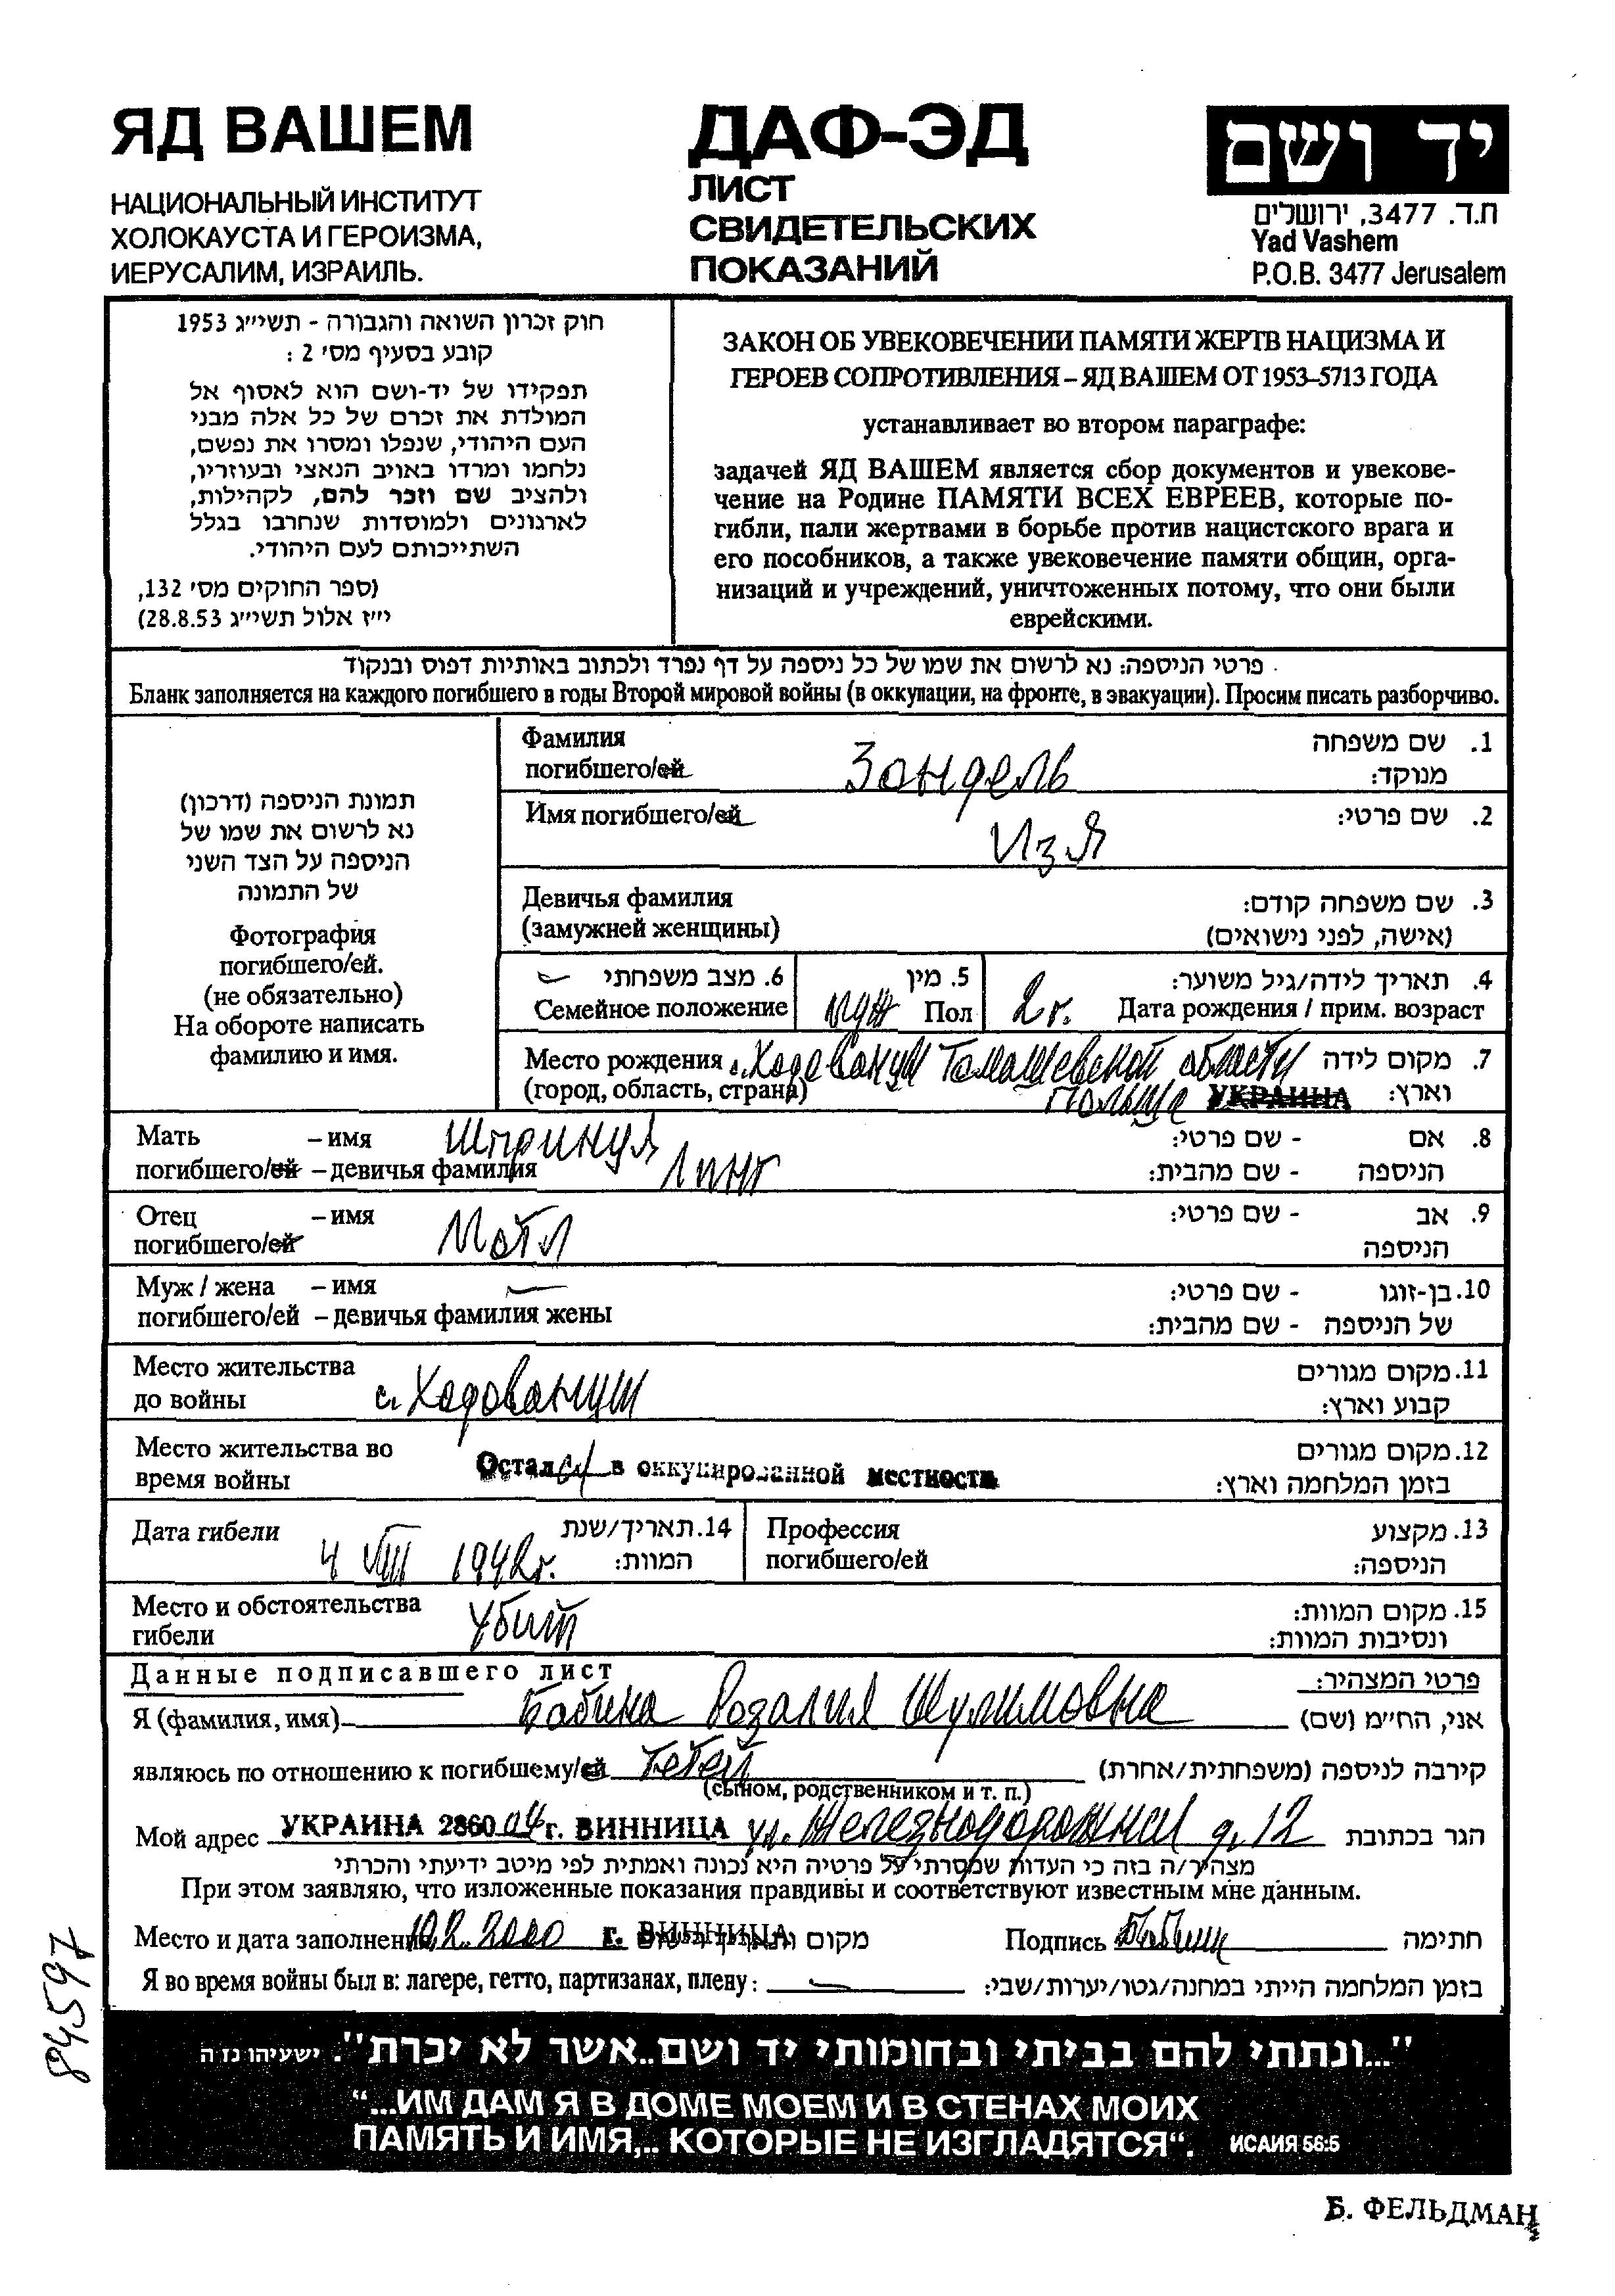 ЯД ВАШЕМ
НАЦИОНАЛЬНЫЙ ИНСТИТУТ
ХОЛОКАУСТА И ГЕРОИЗМА,
ИЕРУСАЛИМ, ИЗРАИЛЬ.
ДАФ-ЭД
ЛИСТ
СВИДЕТЕЛЬСКИХ
ПОКАЗАНИЙ
יד ושם
ת.ד. 3477, ירושלים
Yad Vashem
P.O.B. 3477 Jerusalem
חוק זכרון השואה והגבורה - תשי״ג 1953
קובע בסעיף מס׳ 2 :
תפקידו של יד-ושם הוא לאסוף אל
המולדת את זכרם של כל אלה מבני
העם היהודי, שנפלו ומסרו את נפשם,
נלחמו ומרדו באויב הנאצי ובעוזריו,
ולהציב שם וזכר להם, לקהילות,
לארגונים ולמוסדות שנחרבו בגלל
השתייכותם לעם היהודי.
(ספר החוקים מס׳ 132,
י״ז אלול תשי״ג 28.8.53)
ЗАКОН ОБ УВЕКОВЕЧЕНИИ ПАМЯТИ ЖЕРТВ НАЦИЗМА И
ГЕРОЕВ СОПРОТИВЛЕНИЯ – ЯД ВАШЕМ ОТ 1953–5713 ГОДА
устанавливает во втором параграфе:
задачей ЯД ВАШЕМ является сбор документов и увекове-
чение на Родине ПАМЯТИ ВСЕХ ЕВРЕЕВ, которые по-
гибли, пали жертвами в борьбе против нацистского врага и
его пособников, а также увековечение памяти общин, орга-
низаций и учреждений, уничтоженных потому, что они были
еврейскими.
פרטי הניספה: נא לרשום את שמו של כל ניספה על דף נפרד ולכתוב באותיות דפוס ובנקוד
Бланк заполняется на каждого погибшего в годы Второй мировой войны (в оккупации, на фронте, в эвакуации). Просим писать разборчиво.
תמונת הניספה (דרכון)
נא לרשום את שמו של
הניספה על הצד השני
של התמונה
Фотография
погибшего/ей.
(не обязательно)
На обороте написать
фамилию и имя.
Фамилия
погибшего/ей Зондель
1. שם משפחה
מנוקד:
Имя погибшего/ей Изя 2. שם פרטי:
Девичья фамилия
(замужней женщины)
3. שם משפחה קודם:
(אישה, לפני נישואים)
6. מצב משפחתי
Семейное положение
5. מין
муж Пол
4. תאריך לידה/גיל משוער:
2 г. Дата рождения / прим. возраст
Место рождения с. Ходованцы Томашевской области 7. מקום לידה
(город, область, страна) Польша УКРАИНА וארץ:
Мать – имя Шпринця 8. אם - שם פרטי:
погибшего/ей – девичья фамилия Линг הניספה - שם מהבית:
Отец – имя Мотл 9. אב - שם פרטי:
погибшего/ей הניספה
Муж / жена – имя 10. בן-זוגו - שם פרטי:
погибшего/ей – девичья фамилия жены של הניספה - שם מהבית:
Место жительства 11. מקום מגורים
до войны с. Ходованцы קבוע וארץ:
Место жительства во 12. מקום מגורים
время войны Остался в оккупированной местности בזמן המלחמה וארץ:
Дата гибели 4 VIII 1942 г. 14. תאריך/שנת
המוות:
Профессия 13. מקצוע
погибшего/ей הניספה:
Место и обстоятельства 15. מקום המוות:
гибели Убит ונסיבות המוות:
Данные подписавшего лист פרטי המצהיר:
Я (фамилия, имя) Бабина Розалия Шулимовна אני, הח״מ (שם)
являюсь по отношению к погибшему/ей тетей קירבה לניספה (משפחתית/אחרת)
(сыном, родственником и т. п.)
Мой адрес УКРАИНА 286004 г. ВИННИЦА ул. Железнодорожная д. 12 הגר בכתובת
מצהיר/ה בזה כי העדות שמסרתי על פרטיה היא נכונה ואמתית לפי מיטב ידיעתי והכרתי
При этом заявляю, что изложенные показания правдивы и соответствуют известным мне данным.
Место и дата заполнения 2000 г. ВИННИЦА מקום Подпись חתימה
Я во время войны был в: лагере, гетто, партизанах, плену: בזמן המלחמה הייתי במחנה/גטו/יערות/שבי:
84597
"...ונתתי להם בביתי ובחומותי יד ושם..אשר לא יכרת". ישעיהו נז ה
“...ИМ ДАМ Я В ДОМЕ МОЕМ И В СТЕНАХ МОИХ
ПАМЯТЬ И ИМЯ,.. КОТОРЫЕ НЕ ИЗГЛАДЯТСЯ“. ИСАИЯ 56:5
Б. ФЕЛЬДМАН